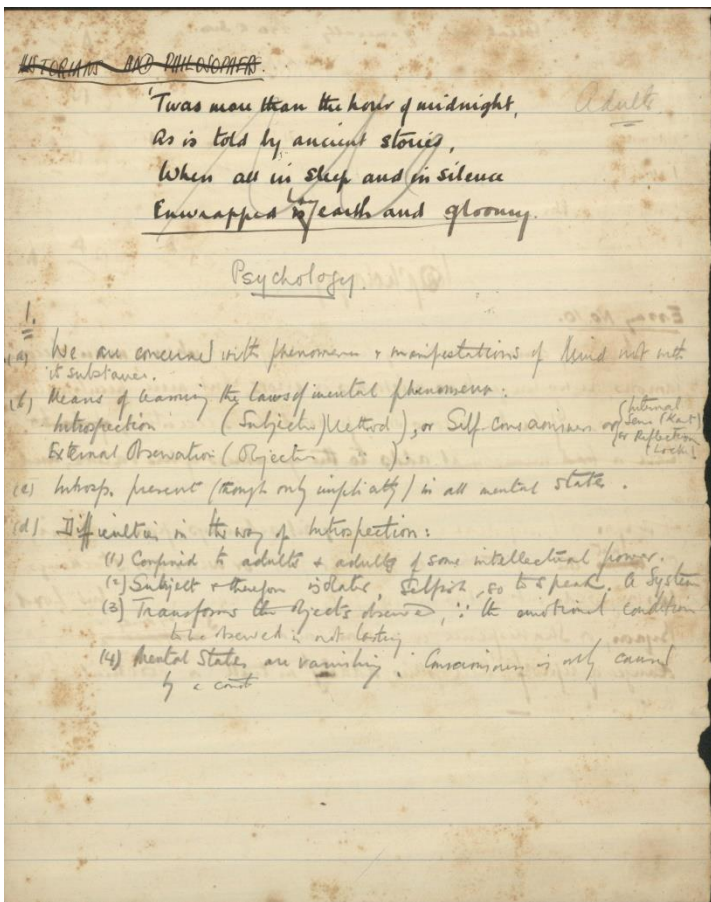 HISTORIANS AND PHILOSOPHERS.
'Twas more than the hour of midnight,
Adults
As is told by ancient stories,
When all in sleep and in silence
Enwrapped is earth and gloomy.
Psychology.
1.
(a) We are concerned with phenomena & manifestations of Mind not with
it substance.
(b) Means of learning the laws of mental phenomena:
Introspection (Subjective Method), or Self-Consciousness or (Internal
Sense (Kant)
or Reflection
(Locke)
External Observation (Objective ).
(c) Introsp. present (though only implicitly) in all mental states.
(d) Difficulties in the way of Introspection:
(1) Confined to adults & adults of some intellectual power.
(2) Subject & therefore isolates, selfish, so to speak. A System
(3) Transforms the objects observed, ∵ the emotional condition
to be observed is not lasting
(4) Mental States are vanishing: Consciousness is only caused
by a const